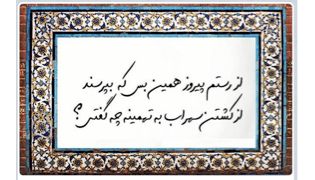 از رستم پیروز همین بس که بپرسند
از کشتن سهراب به تهمینه چه گفتی؟